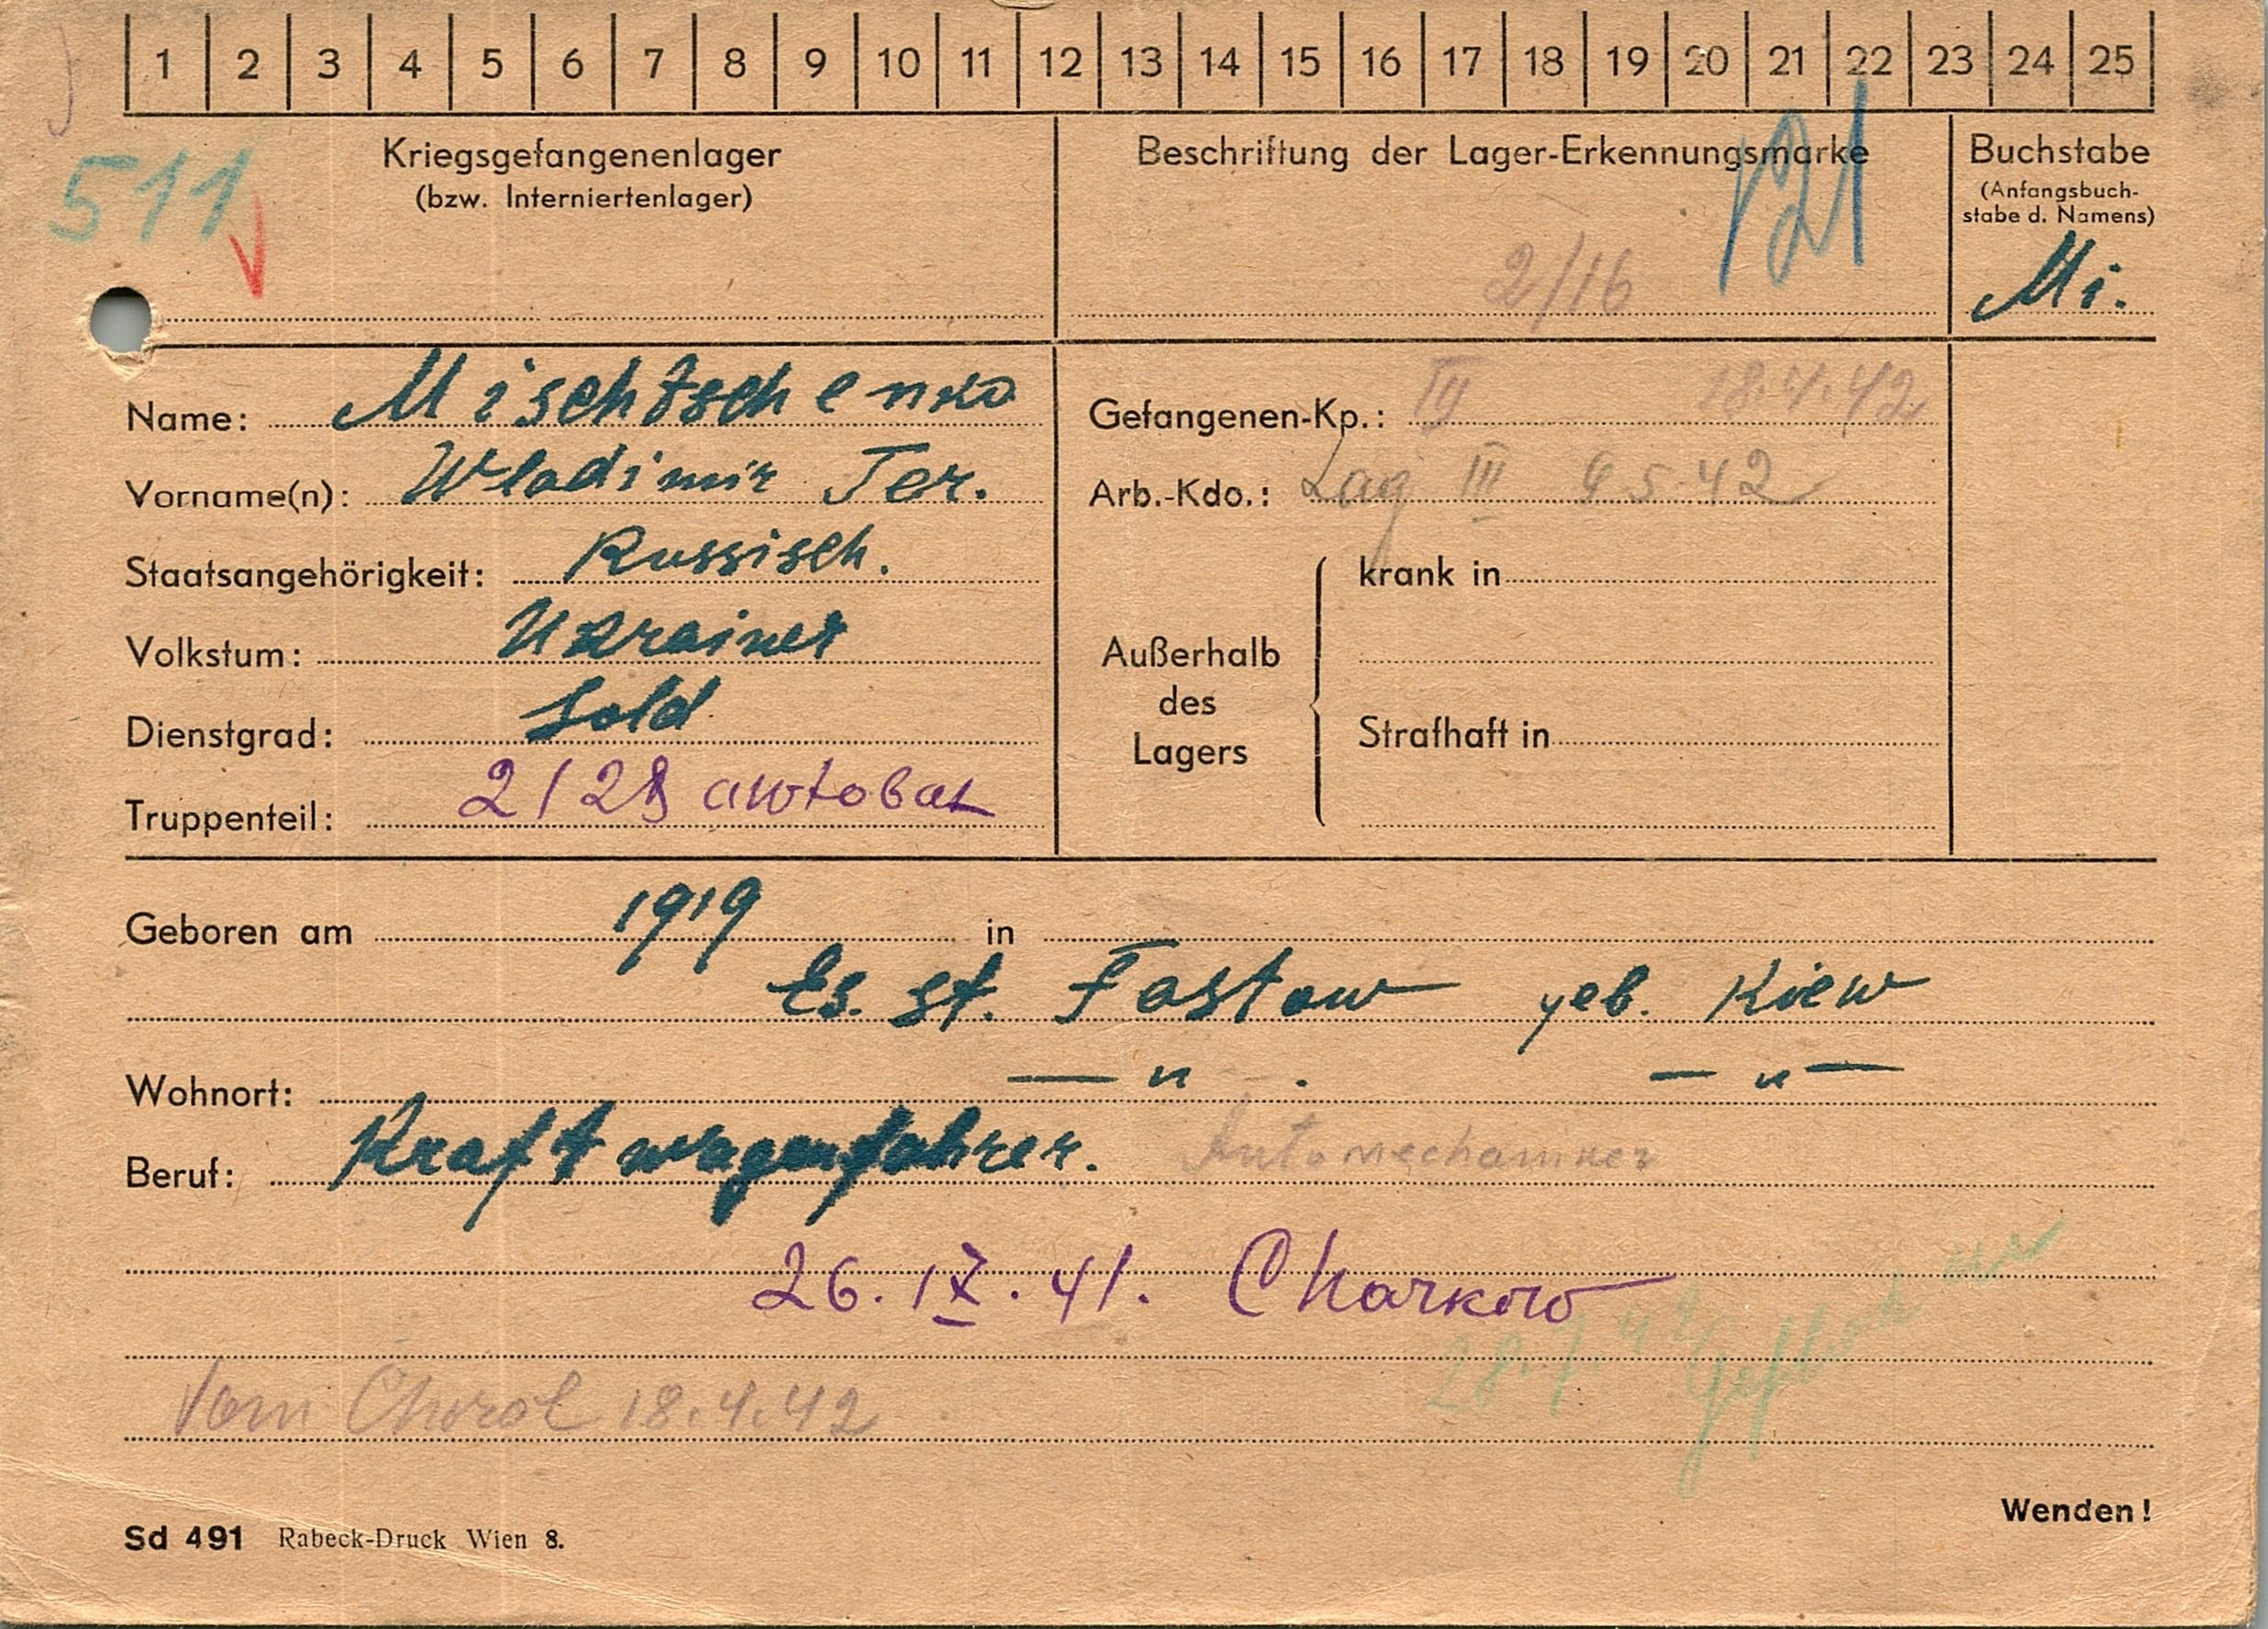 1 2 3 4 5 6 7 8 9 10 11 12 13 14 15 16 17 18 19 20 21 22 23 24 25
511
Kriegsgefangenenlager
(bzw. Interniertenlager)
Beschriftung der Lager-Erkennungsmarke
121
2/16
Buchstabe
(Anfangsbuch-
stabe d. Namens)
Mi.
Name: Mischtschenko
Vorname(n): Wladimir Ter.
Staatsangehörigkeit: Russisch.
Volkstum: Ukrainer
Dienstgrad: Sold
Truppenteil: 2/28 awtobat
Gefangenen-Kp.: 18.4.42
Arb.-Kdo.: Lag III 5.42
Außerhalb
des
Lagers
krank in
Strafhaft in
Geboren am 1919 in
st. Fastow geb. Kiew
Wohnort: — " . — " —
Beruf: Kraftwagenfahrer. Automechaniker
26.IX.41. Charkow
Vom Chorol 18.4.42
28.7.42 geflohen
Wenden!
Sd 491 Rabeck-Druck Wien 8.